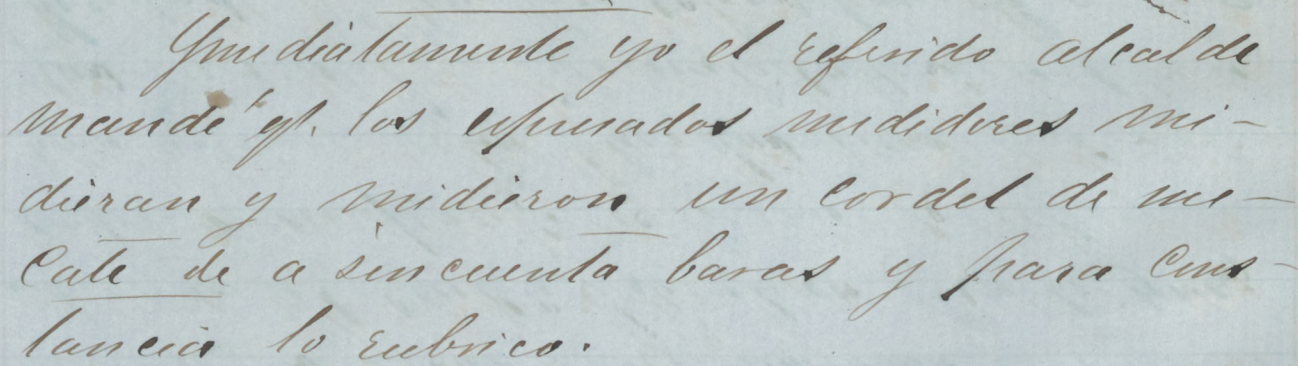 Ymediatamente yo el referido alcalde
mandé qe. los espresados medidores mi-
dieran y midieron un cordel de me-
cate de a sincuenta baras y para cons-
tancia lo rubrico.